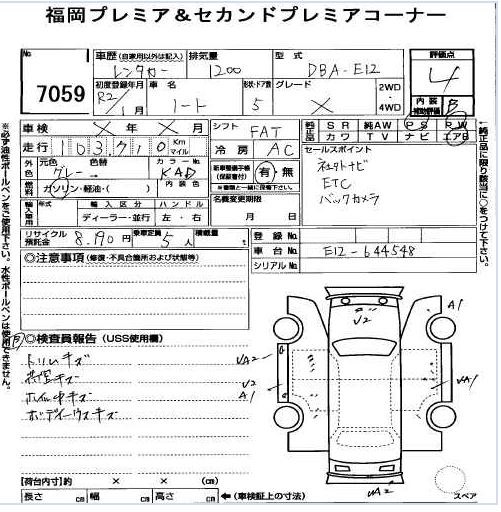 福岡プレミア&セカンドプレミアコーナー
No 7059
車歴 (自家用以外は記入) レンタカー
排気量 1200
型式 DBA-E12
評価点 4
初度登録年月 R2/1月
車名 ノート
形状・ドア数 5
グレード X
2WD・4WD
内装 補助評価 B
車検 ×年×月
シフト FAT
純正品 SR 純AW PS PW
純正品 カワ TV ナビ エアB
走行 103710 Km マイル
冷房 AC
セールスポイント
純正ナビ
ETC
バックカメラ
外色 元色 グレー 色替
カラーNo. KAD
内装色
燃料 ガソリン・軽油・( )
新車整備手帳 (保証書付) 有・無
※書類と一緒に保管下さい。
輸入車用 年式 年
輸入区分 ディーラー・並行
ハンドル 左・右
名義変更期限 月 日
リサイクル預託金 8,190円
乗車定員 5人
積載量 t
登録No.
車台No. E12-644548
シリアルNo.
◎注意事項 (修復・不具合箇所および状態等)
◎検査員報告 (USS使用欄)
トリムキズ
ホイル中キズ
ボディーウスキズ
A1
V2
UA2
V2
A1
UA1
UA2
[荷台内寸] 約 × × (cm)
長さ cm 幅 cm 高さ cm ←(車検証上の寸法)
スペア
※必ず油性ボールペンをご使用下さい。水性ボールペンは使用できません。
※純正品に限り該当に○をつけて下さい。